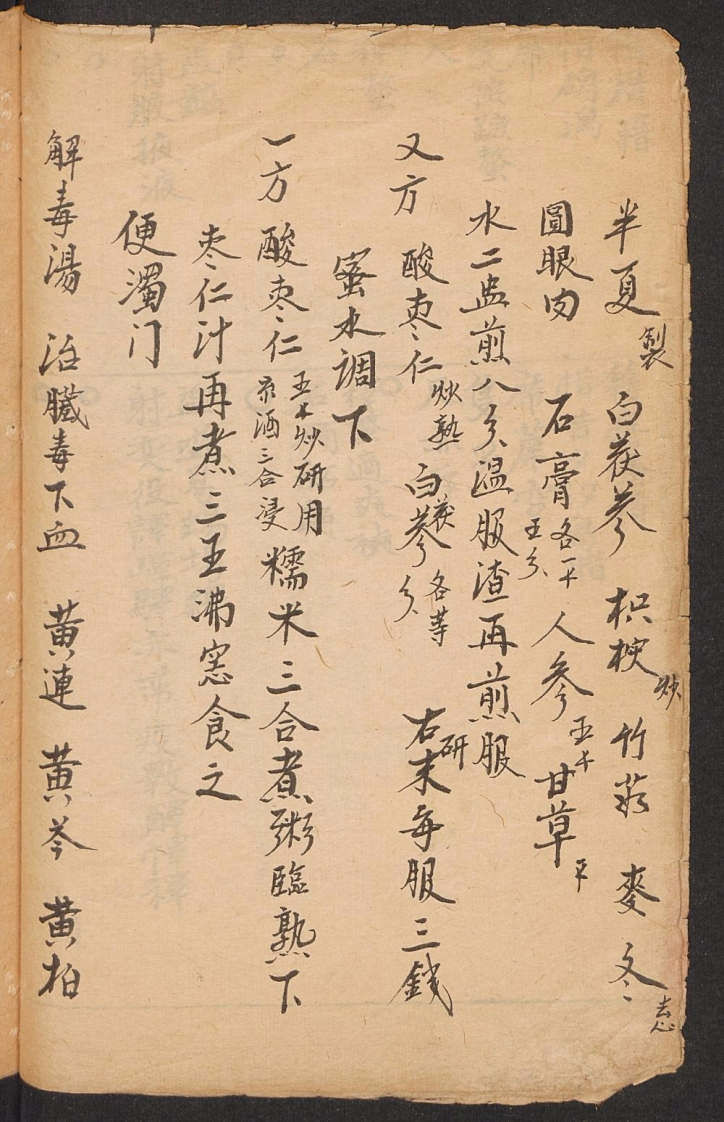 半夏製 白茯苓 枳梗炒 竹茹 麥冬去心
圓眼肉 石膏各平五分 人參五十 甘草平
水二盅煎八分溫服渣再煎服
又方 酸棗仁炒熟 白茯苓各等分 右研末每服三錢
蜜水調下
一方 酸棗仁 炒研用 酒三合浸 糯米三合煮粥臨熟下
棗仁汁再煮三五沸 食之
便濁门
解毒湯 治臟毒下血 黃連 黃芩 黃柏